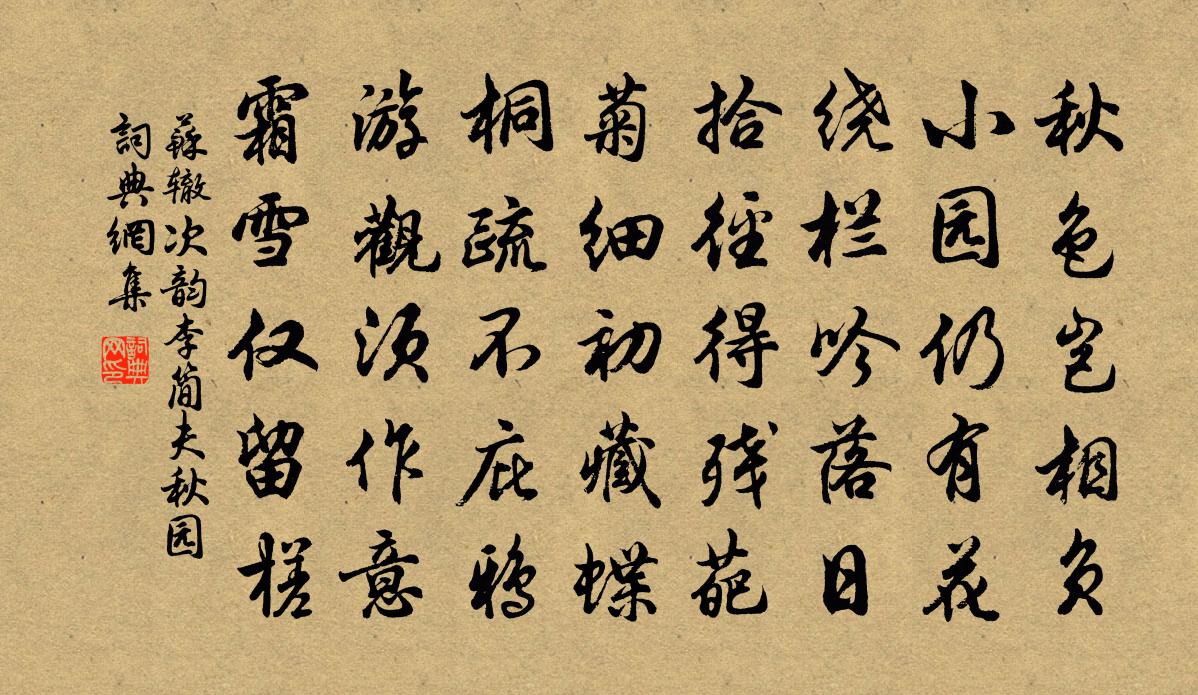 秋色岂相负
小园仍有花
绕栏吟落日
拾徑得残葩
菊细初藏蝶
桐疏不庇鸦
游觀须作意
霜雪仅留槎
蘇辙次韵李简夫秋园
詞典網集
詞典网印